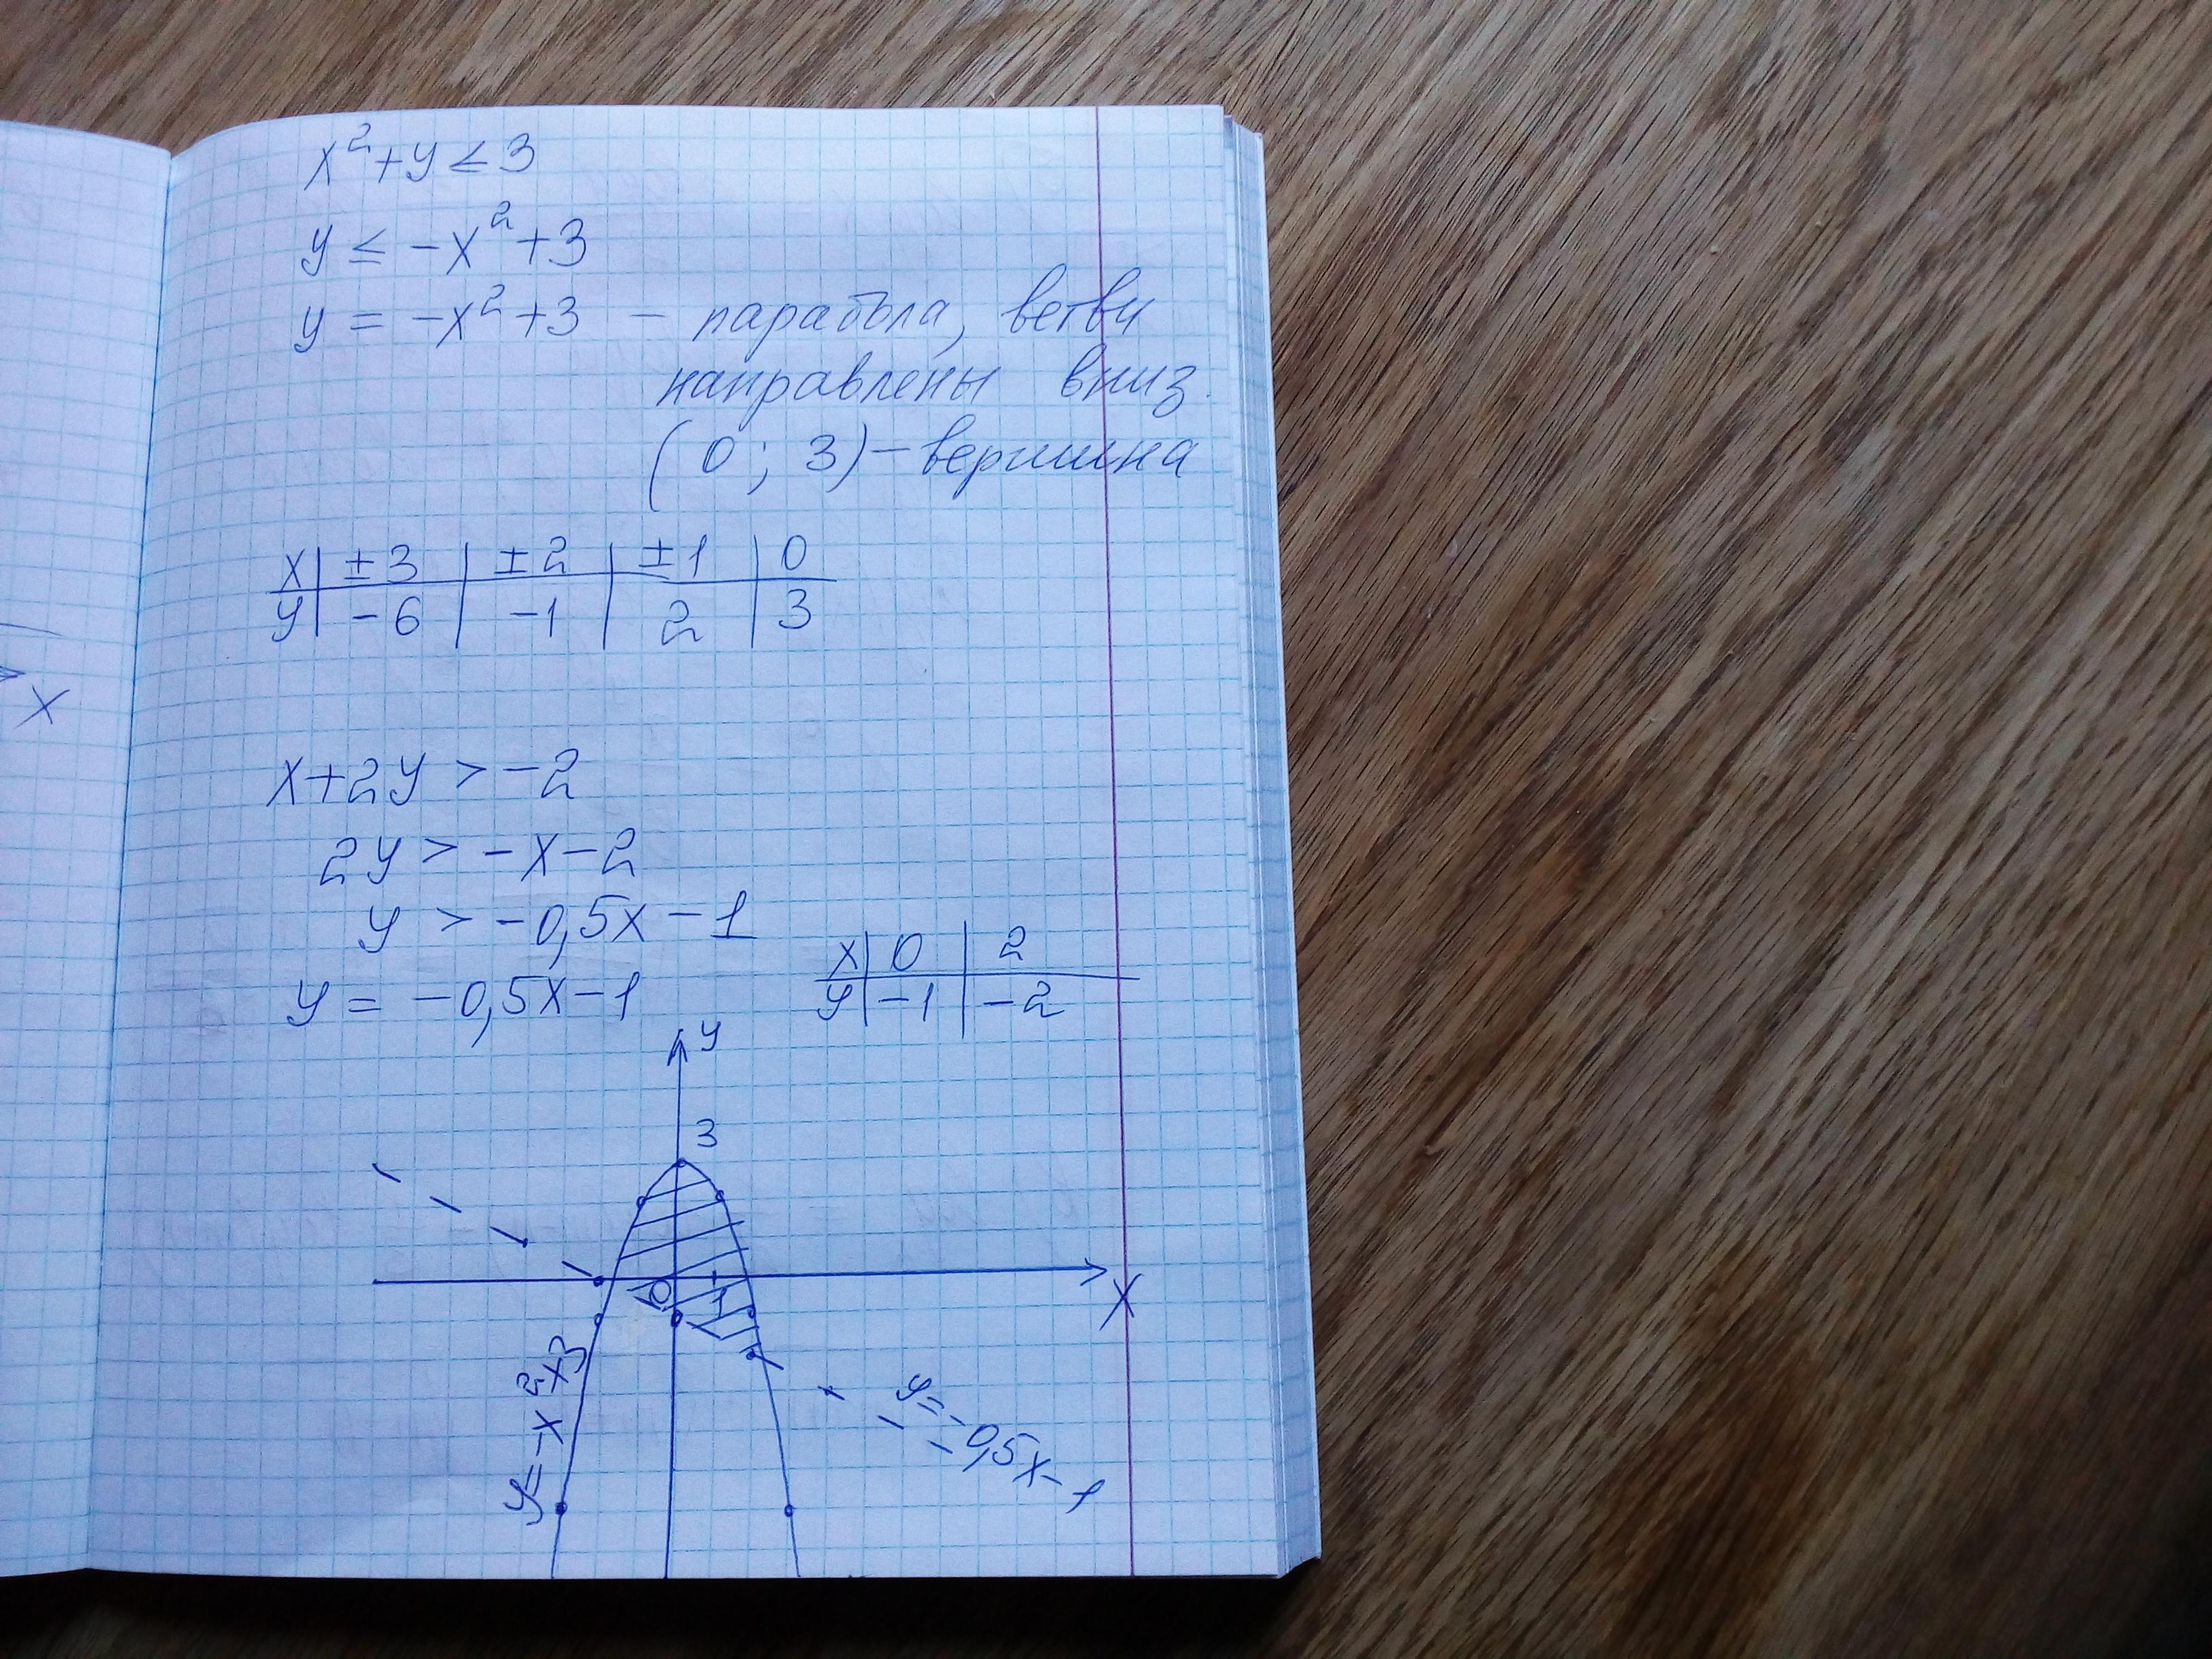 x²+y≤3
y ≤ -x²+3
y = -x²+3 – парабола, ветви
направлены вниз.
(0; 3) – вершина
x | ±3 | ±2 | ±1 | 0
y | -6 | -1 | 2 | 3
x
x+2y > -2
2y > -x-2
y > -0,5x-1
y = -0,5x-1
x | 0 | 2
y | -1 | -2
y
3
0
1
x
y=-x²+3
y=-0,5x-1